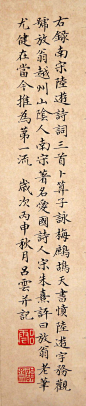 右錄南宋陸遊詩詞三首卜算子詠梅鷓鴣天書憤陸遊字務觀
號放翁越州山陰人南宋著名愛國詩人宋朱熹評曰放翁老筆
尤健在當今推為第一流 歲次丙申秋月呂雲并記